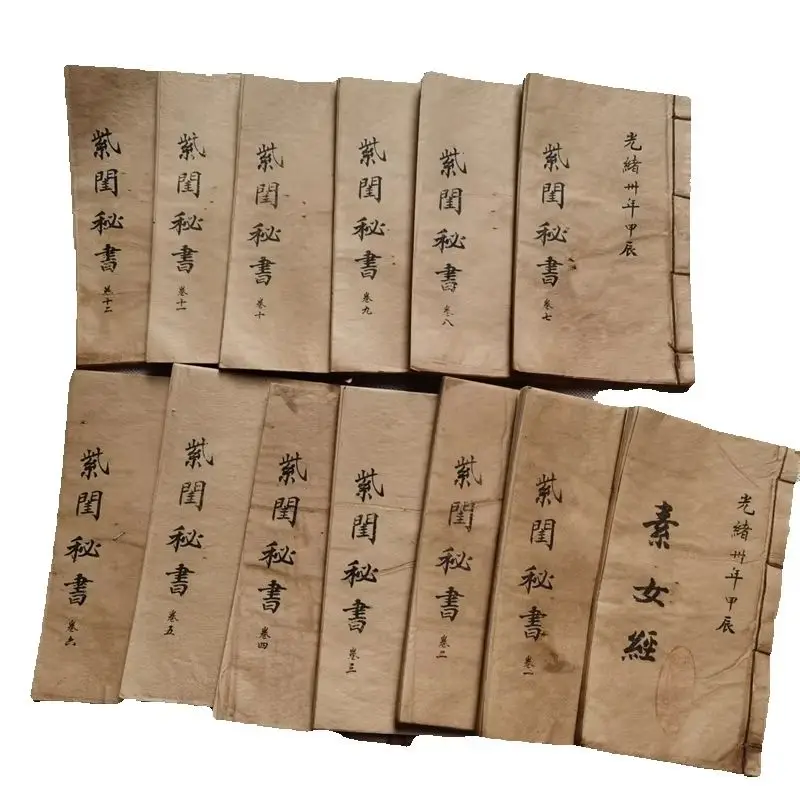 光緒卅年甲辰
紫閨秘書
卷七
紫閨秘書
卷八
紫閨秘書
卷九
紫閨秘書
卷十
紫閨秘書
卷十一
紫閨秘書
卷十二
光緒卅年甲辰
素女經
紫閨秘書
卷一
紫閨秘書
卷二
紫閨秘書
卷三
紫閨秘書
卷四
紫閨秘書
卷五
紫閨秘書
卷六